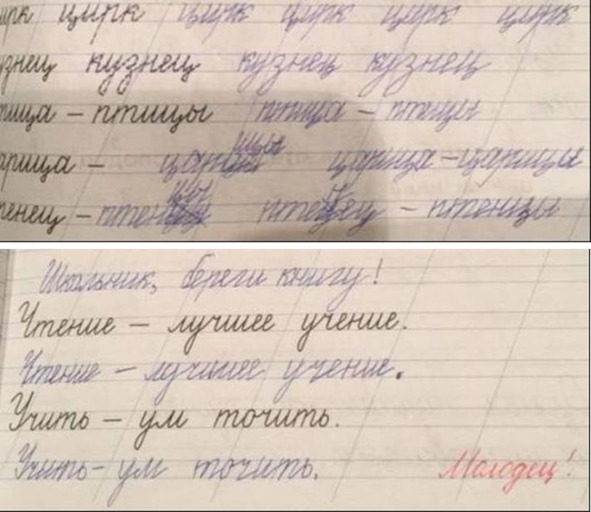 цирк цирк цирк цирк цирк
кузнец кузнец кузнец
птицы птица – птицы
царица – царицы
птенец – птенцы
Школьник, береги книгу!
Чтение – лучшее учение.
Чтение – лучшее учение.
Учить – ум точить.
Учить – ум точить. Молодец!